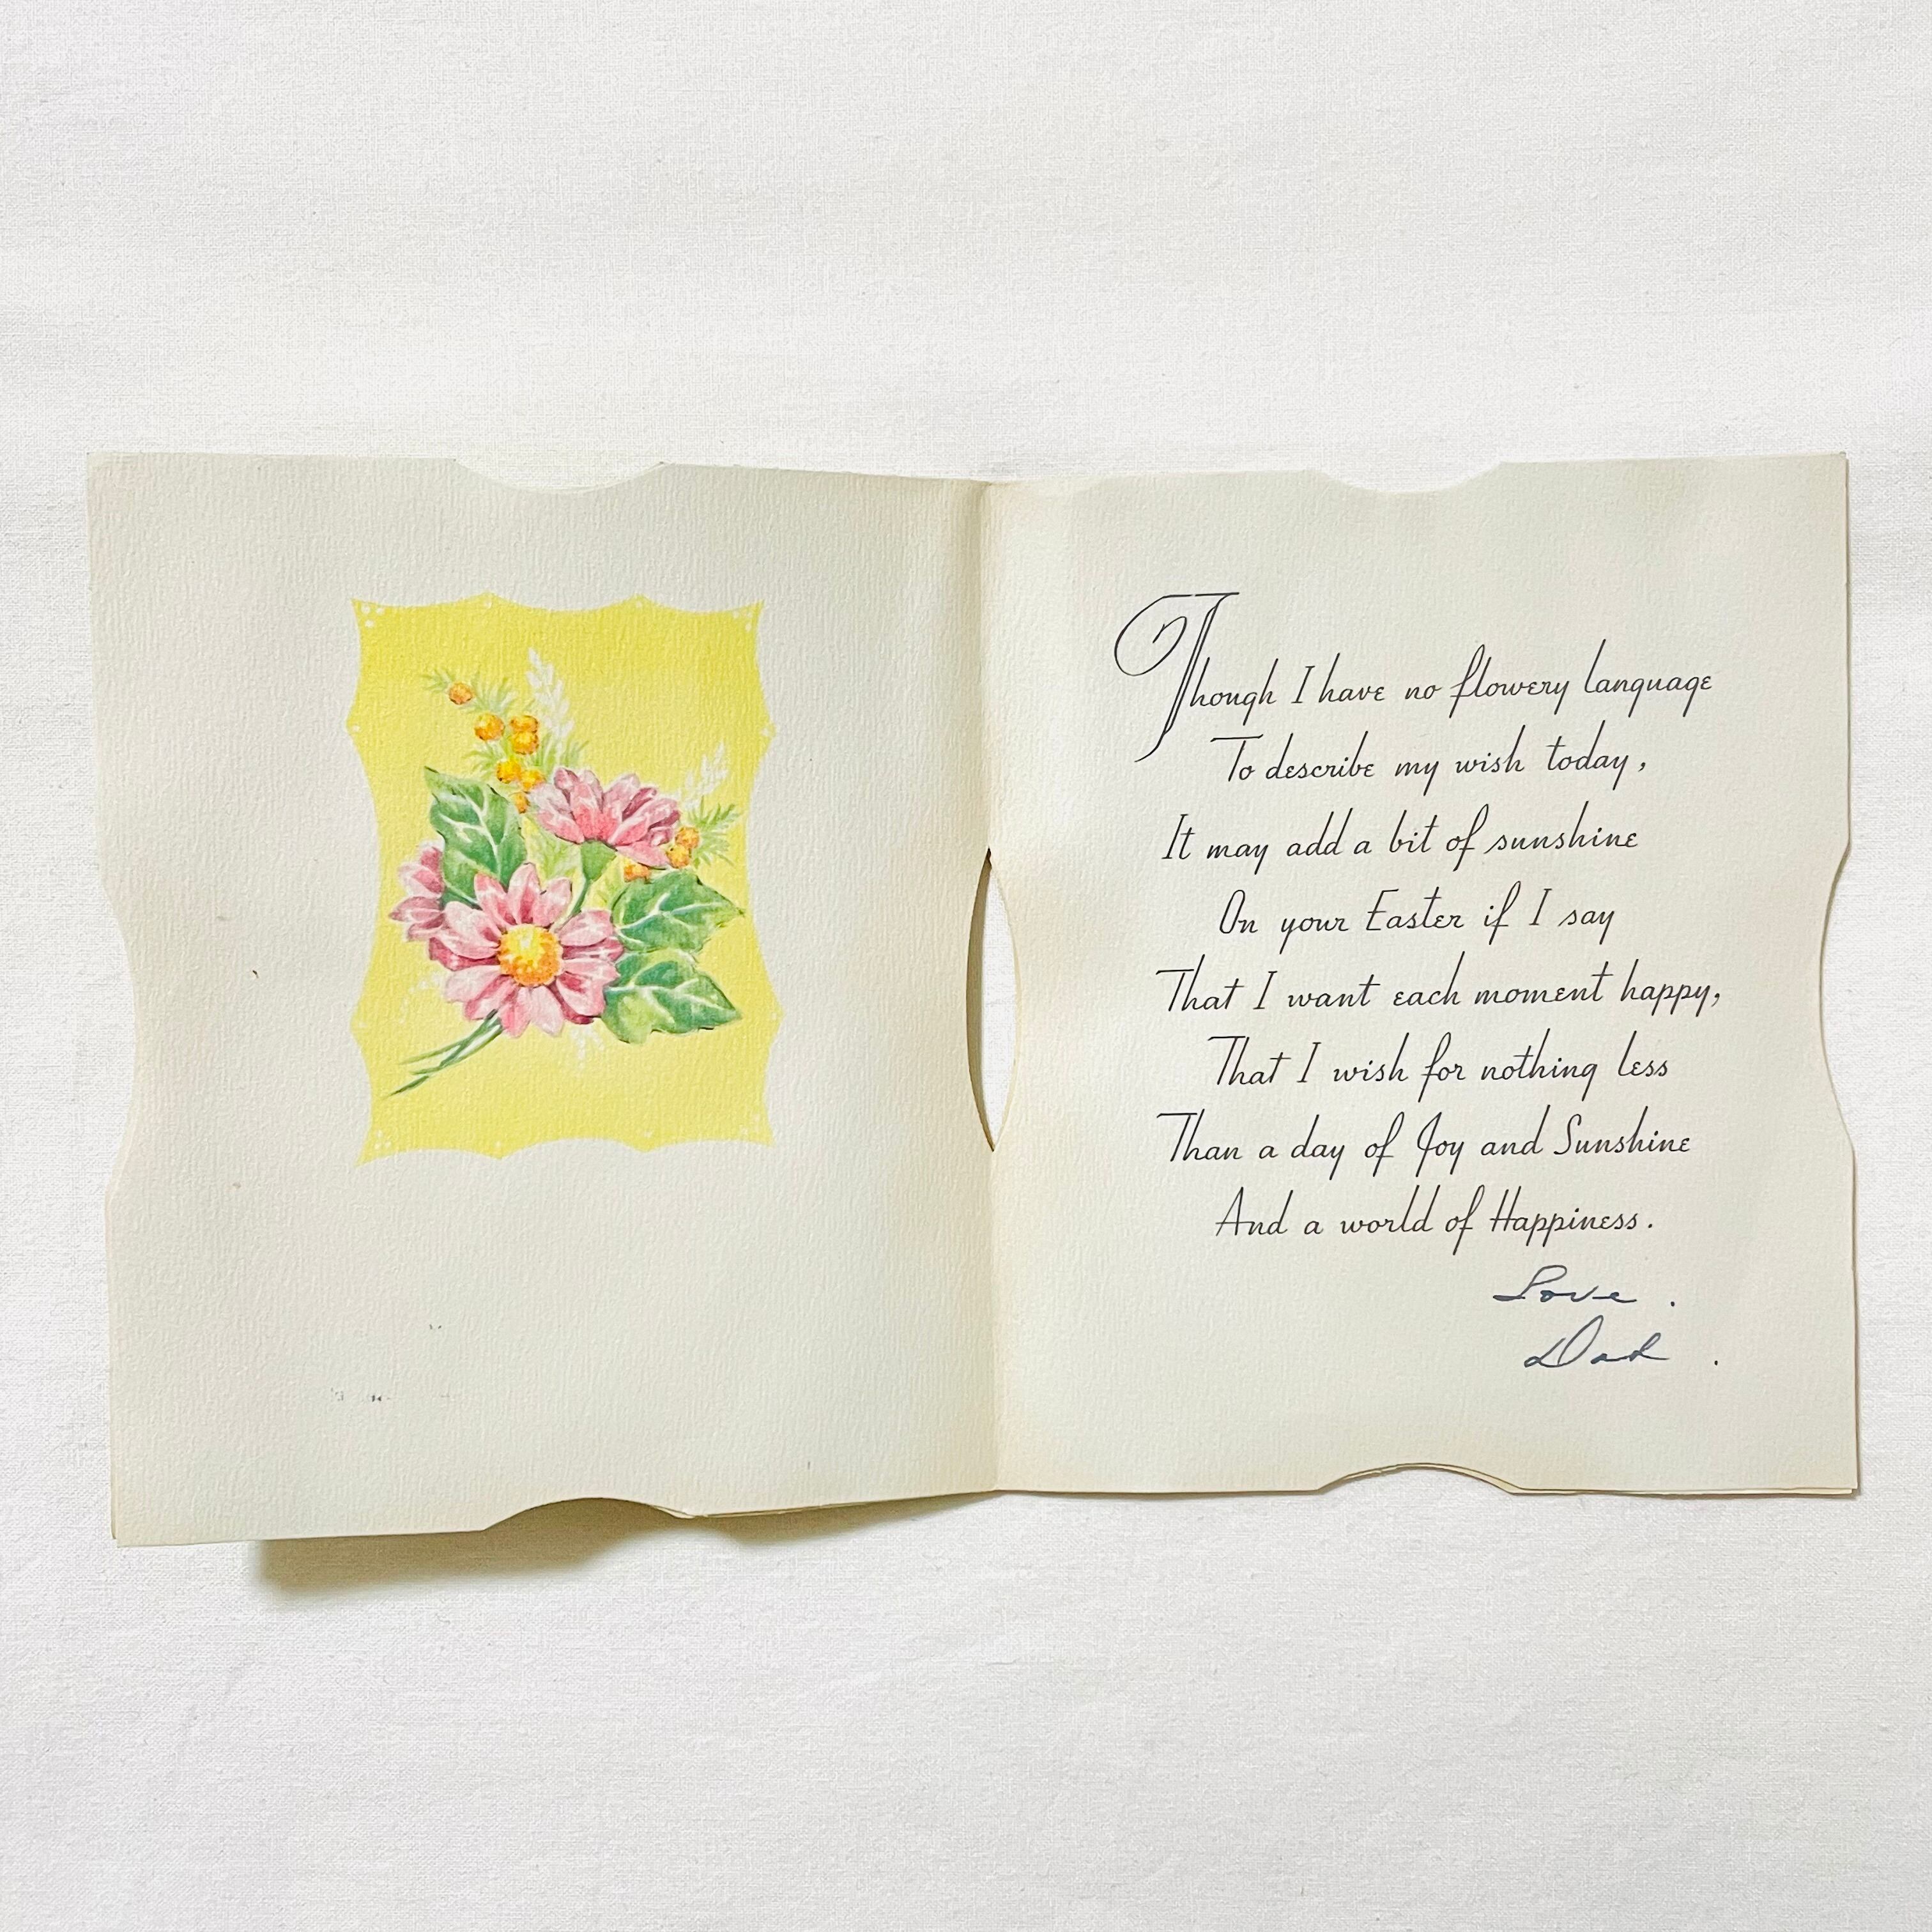 Though I have no flowery language
To describe my wish today,
It may add a bit of sunshine
On your Easter if I say
That I want each moment happy,
That I wish for nothing less
Than a day of Joy and Sunshine
And a world of Happiness.
Love.
Dad.